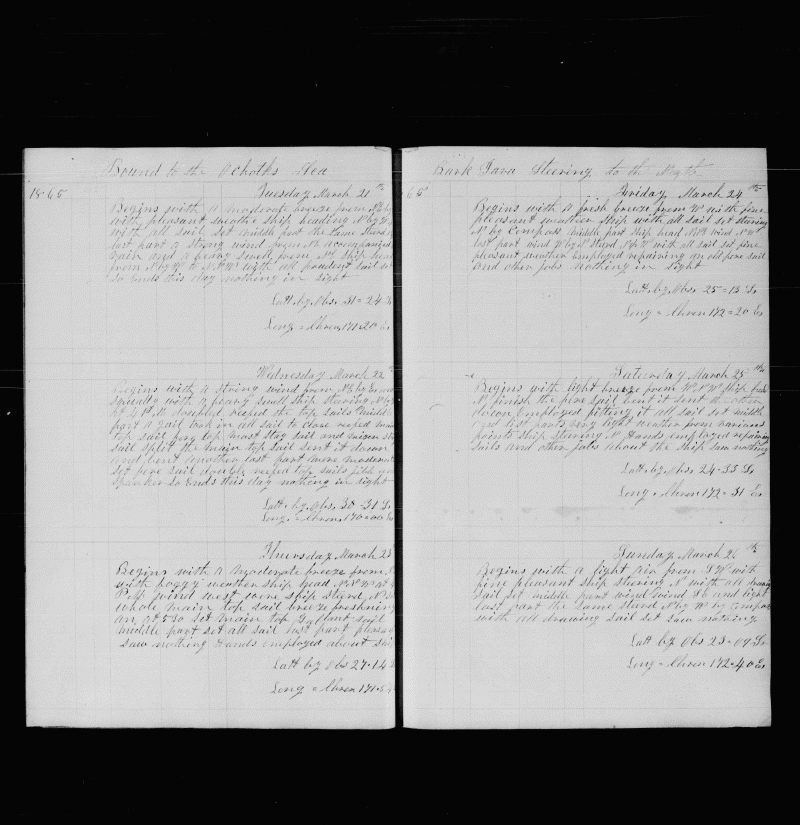 Bound to the Ochotks Sea
1865
Tuesday March 21th
Begins with a moderate breeze from N by
with pleasant weather ship heading N by
with all sail set middle part the Same
last part a strong wind from N accompanied
rain and a heavy swell from N ship head
from N by W to with all prudent sail set
So ends this day nothing in sight
Latt. by Obs. 31=24 S
Long = Chron. 171.20 E
Wednesday March 22
Begins with a strong wind from N by E and
squally with a heavy swell ship steering N by
at 4 P.M. doubled reefed the top sails middle
part a gail took in all sail to close reefed main
top sail fore top mast stay sail and mizen
sail split the main top sail sent it down
and bent another last part more moderate
set fore sail double reefed top sails jib
spanker So Ends this day nothing in sight
Latt. by Obs. 30-31 S
Long. = Chron. 170=00 E
Thursday March 23
Begins with a moderate breeze from
with foggy weather ship head N N W at 4
P.M. wind west wore ship steard N
whole main top sail breeze freshning
at 5 So set main top Gallant sail
middle part set all sail last part pleasant
Saw nothing Hands employed about ship
Latt by Obs 27.14 S
Long = Chron 171.
Bark Java Steering to the North
65
Friday March 24th
Begins with a fresh breeze from W with fine
pleasant weather Ship with all sail set steering
N by Compass middle part ship head wind
last part wind W by N Steard with all sail set fine
pleasant weather employed repairing an old fore sail
and other jobs nothing in sight
Latt. by Obs. 25=13 S
Long = Chron 172=20 E
Saturday March 25th
Begins with light breeze from W.N.W. ship head
N finish the fore sail bent it sent the other
down employed fitting it all sail set middle
and last parts very light weather from various
points ship steering N Hands employed repairing
sails and other jobs about the ship saw nothing
Latt. by Obs. 24-33 S
Long. = Chron 172=31 E
Sunday March 26th
Begins with a light air from S W with
fine pleasant ship steering N with all drawing
sail set middle part wind and light
last part the same steard N by W by Compass
with all drawing sail set saw nothing
Latt by Obs 23=09 S
Long = Chron 172=40 E